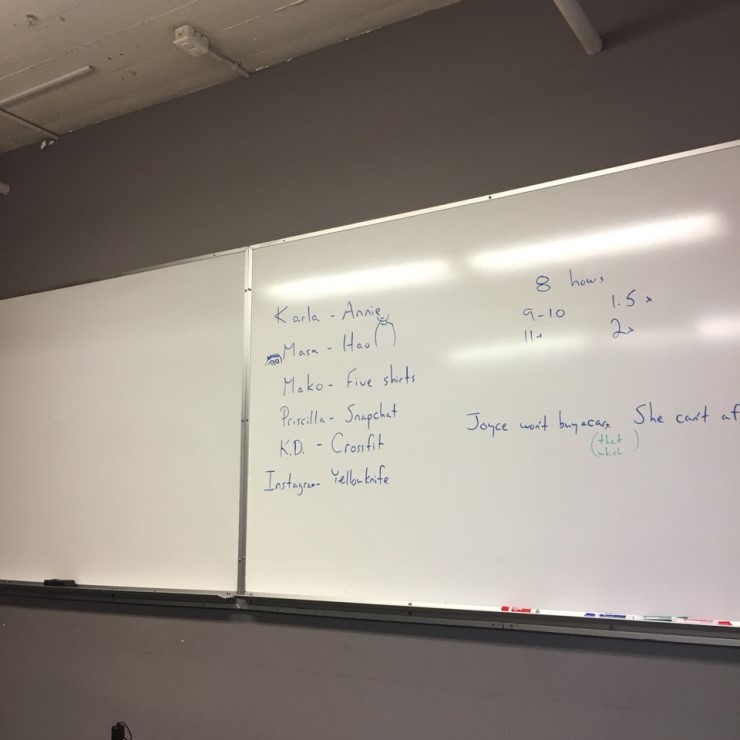 Karla - Annie
Masa - Hao
Mako - Five shirts
Priscilla - Snapchat
K.D. - Crossfit
Instagram - Yellowknife
8 hours
9-10 1.5x
11+ 2x
Joyce won't buy a car. She can't af
(that
which)